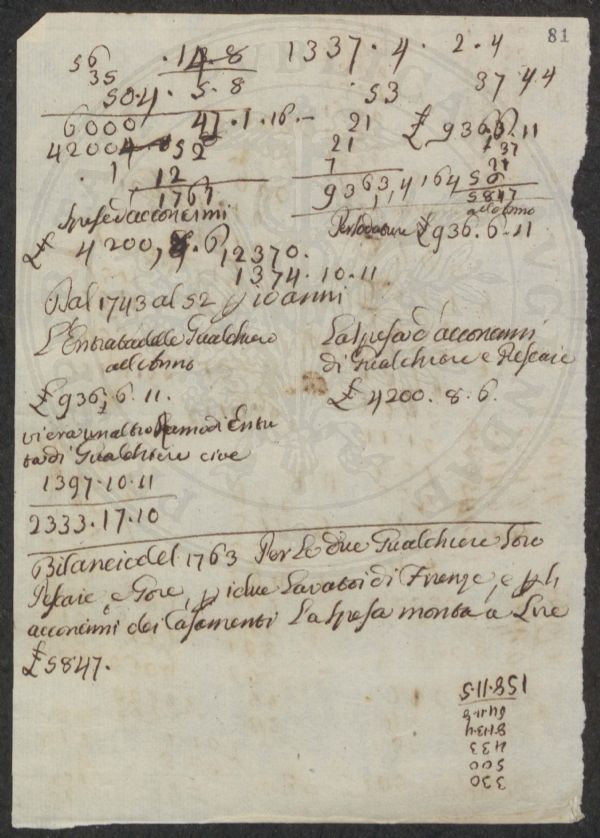 81
56
35
504. 5. 8
6000
4200
52
12
1767
47. 1. 16. –
1337. 4. 2. 4
53
37 4 4
21
21
7
9363
4164
£ 936. 6. 11
37
5847
all'Anno
Spese d'acconcimi
4200, 8. 6
12370.
1374. 10. 11
£ 936. 6. 11
Dal 1743 al 52 p 10 anni
L'Entrata delle Gualchiere
all'Anno
£ 936. 6. 11.
vi era un altro Ramo di Entra
ta di Gualchiere cioè
1397. 10. 11
2333. 17. 10
La Spesa d'acconcimi
di Gualchiere e Pescaie
£ 4200. 8. 6.
Bilancio del 1763 Per Le due Gualchiere Loro
Pescaie, e Gore, p i due Lavatoi di Firenze, e p gli
acconcimi dei Casamenti La Spesa monta a Lire
£ 5847.
330
500
433
158. 11. 5